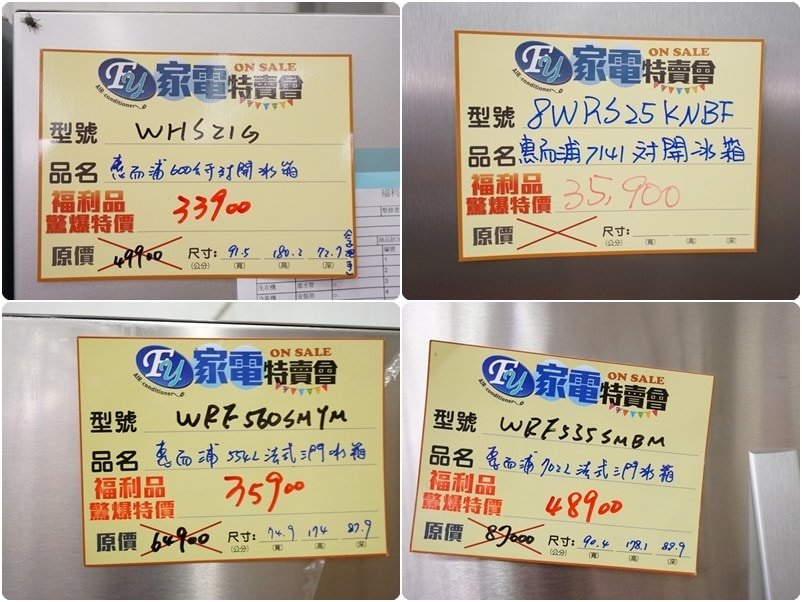 Fy 家電特賣會 ON SALE
AIR-conditioner
型號 WHS21G
品名 惠而浦600公升對開冰箱
福利品
驚爆特價 33900
原價 49900 尺寸: 91.5 180.2 72.7
(公分) (寬) (高) (深)
福利
洗衣機
Fy 家電特賣會 ON SALE
AIR-conditioner
型號 8WRS25KNBF
品名 惠而浦714L對開冰箱
福利品
驚爆特價 35,900
原價 尺寸:
(公分) (寬) (高) (深)
Fy 家電特賣會 ON SALE
AIR-conditioner
型號 WRF560SMYM
品名 惠而浦 554L法式三門冰箱
福利品
驚爆特價 35900
原價 64900 尺寸: 74.9 174 87.9
(公分) (寬) (高) (深)
Fy 家電特賣會 ON SALE
AIR-conditioner
型號 WRF535SMBM
品名 惠而浦 702L法式三門冰箱
福利品
驚爆特價 48900
原價 87000 尺寸: 90.4 178.1 88.9
(公分) (寬) (高) (深)